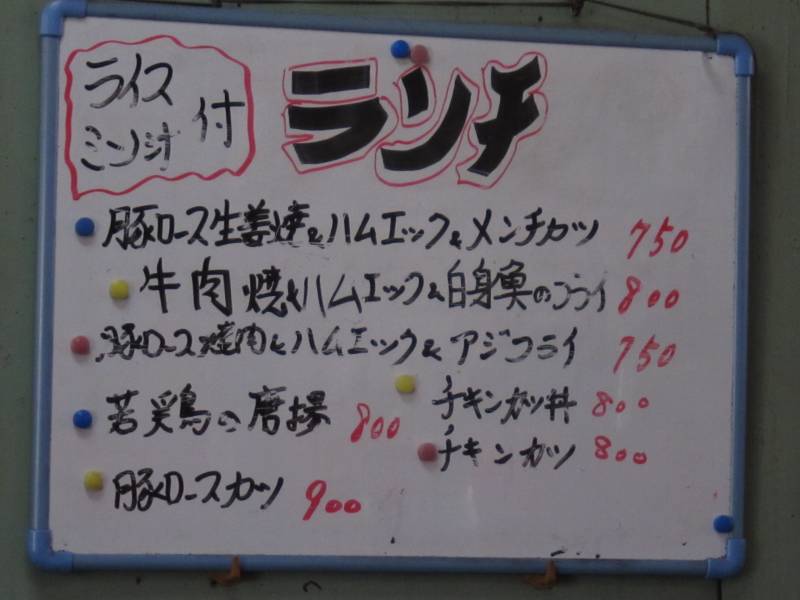 ライス
ミソ汁
付
ランチ
豚ロース生姜焼&ハムエッグ&メンチカツ 750
牛肉焼&ハムエッグ&白身魚のフライ 800
豚ロース焼肉&ハムエッグ&アジフライ 750
若鶏の唐揚 800
チキンカツ丼 800
チキンカツ 800
豚ロースカツ 900